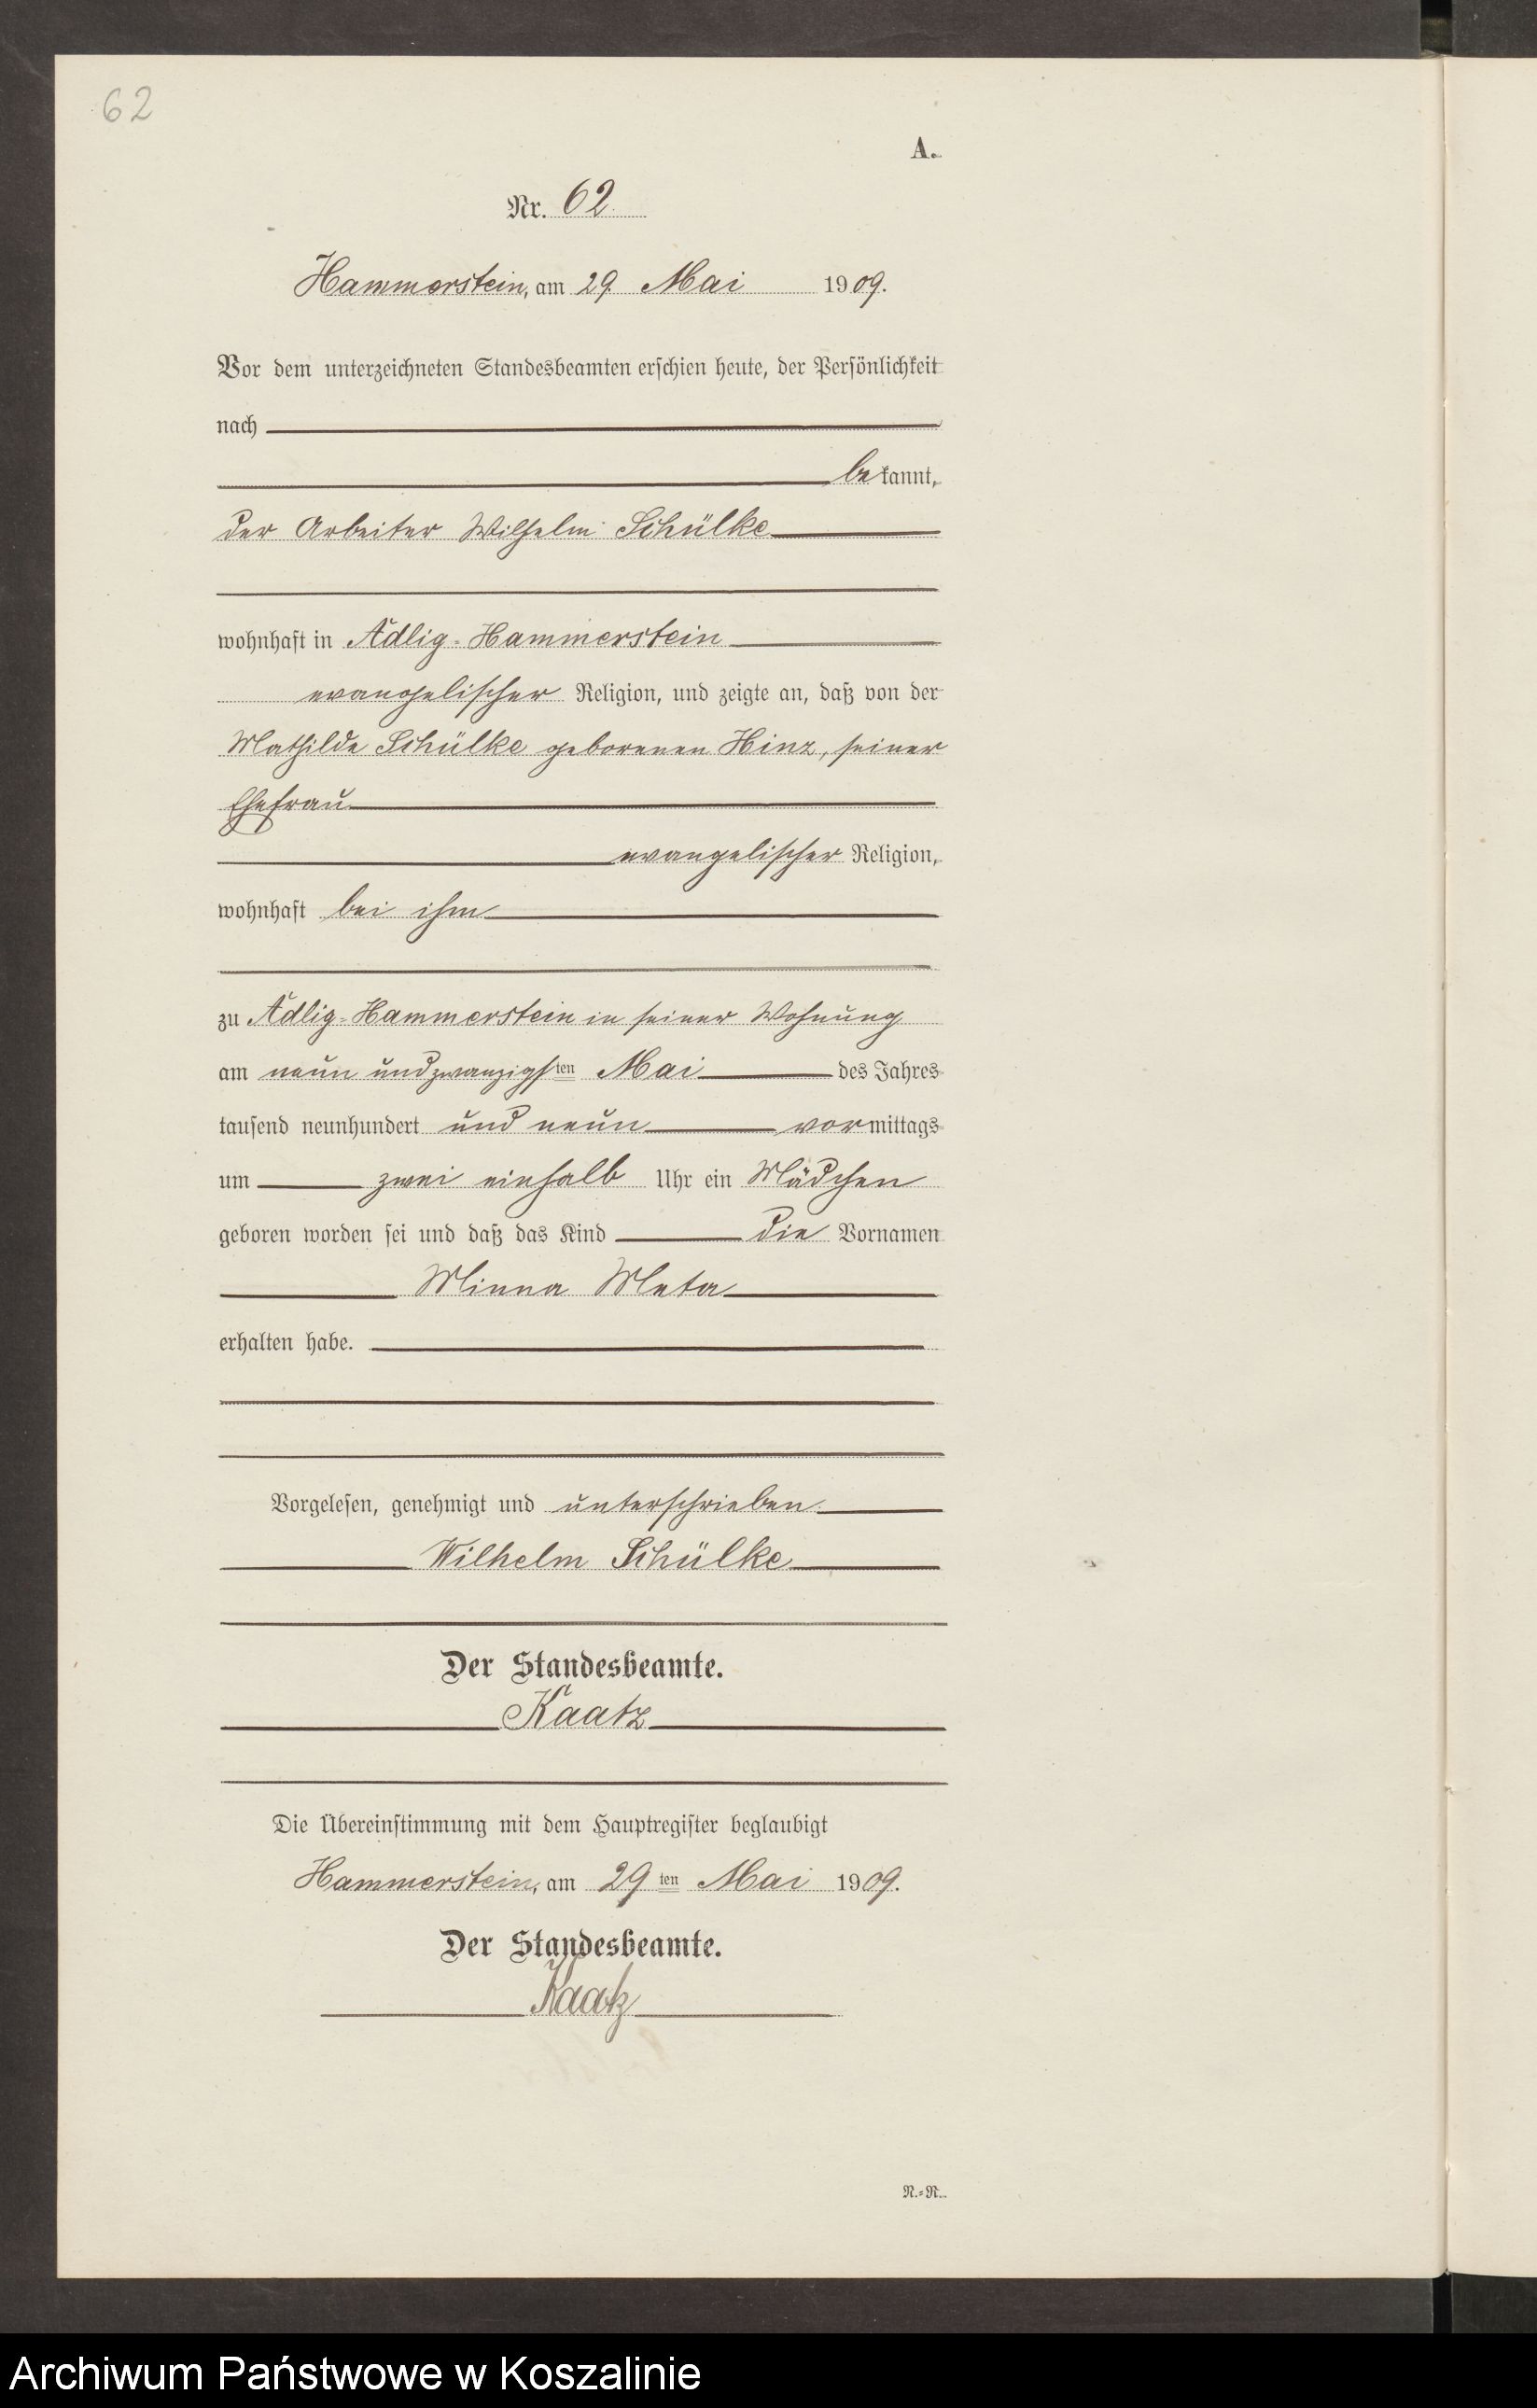 62
A.
Nr. 62
Hammerstein, am 29. Mai 1909.
Vor dem unterzeichneten Standesbeamten erschien heute, der Persönlichkeit
nach
bekannt,
der Arbeiter Wilhelm Schülke
wohnhaft in Adlig-Hammerstein
evangelischer Religion, und zeigte an, daß von der
Mathilde Schülke geborenen Hinz, seiner
Ehefrau
evangelischer Religion,
wohnhaft bei ihm
zu Adlig-Hammerstein in seiner Wohnung
am neun und zwanzigsten Mai des Jahres
tausend neunhundert und neun vormittags
um zwei einhalb Uhr ein Mädchen
geboren worden sei und daß das Kind die Vornamen
Minna Meta
erhalten habe.
Vorgelesen, genehmigt und unterschrieben.
Wilhelm Schülke
Der Standesbeamte.
Kaatz
Die Übereinstimmung mit dem Hauptregister beglaubigt
Hammerstein, am 29ten Mai 1909.
Der Standesbeamte.
Kaatz
N.=R.
Archiwum Państwowe w Koszalinie